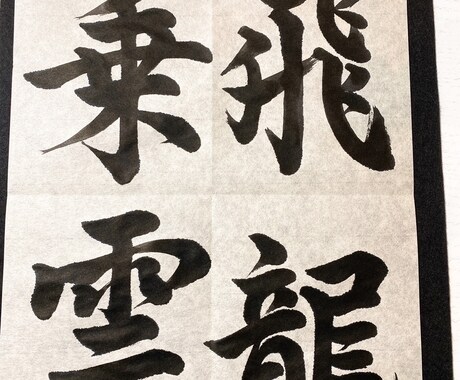 飛龍
乗雲